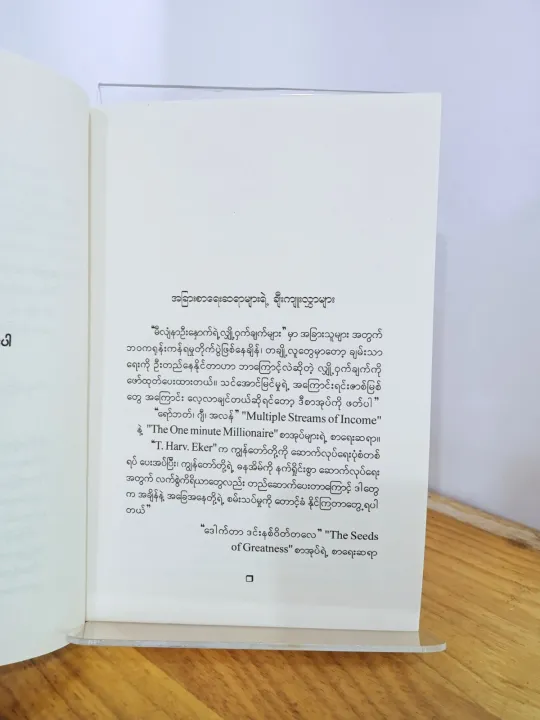 ပါ
အခြားစာရေးဆရာများရဲ့ ချီးကျူးလွှာများ
“မီလျံနာဦးနှောက်ရဲ့လျှို့ဝှက်ချက်များ” မှာ အခြားသူများ အတွက်
ဘဝကရုန်းကန်ရမှုတိုက်ပွဲဖြစ်နေချိန်၊ တချို့လူတွေမှာတော့ ချမ်းသာ
ရေးကို ဦးတည်နေနိုင်တာဟာ ဘာကြောင့်လဲဆိုတဲ့ လျှို့ဝှက်ချက်ကို
ဖော်ထုတ်ပေးထားတယ်။ သင်အောင်မြင်မှုရဲ့ အကြောင်းရင်းဇာစ်မြစ်
တွေ အကြောင်း လေ့လာချင်တယ်ဆိုရင်တော့ ဒီစာအုပ်ကို ဖတ်ပါ ”
“ရော်ဘတ်၊ ဂျီ၊ အလန်” "Multiple Streams of Income"
နဲ့ "The One minute Millionaire" စာအုပ်များရဲ့ စာရေးဆရာ။
“T. Harv. Eker” က ကျွန်တော်တို့ကို ဆောက်လုပ်ရေးပုံစံတစ်
ရပ် ပေးအပ်ပြီး၊ ကျွန်တော်တို့ရဲ့ ဓနအိမ်ကို နက်ရှိုင်းစွာ ဆောက်လုပ်ရေး
အတွက် လက်စွဲကိရိယာတွေလည်း တည်ဆောက်ပေးတာကြောင့် ဒါတွေ
က အချိန်နဲ့ အခြေအနေတို့ရဲ့ စမ်းသပ်မှုကို တောင့်ခံ နိုင်ကြတာတွေ့ရပါ
တယ်”
“ဒေါက်တာ ဒင်းနစ်ဝိတ်တလေ” "The Seeds
of Greatness" စာအုပ်ရဲ့ စာရေးဆရာ